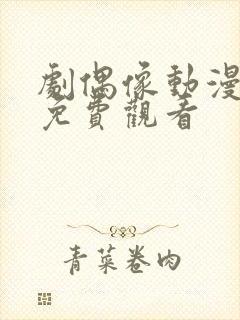 劇偶像動漫
免費觀看
青菜卷肉